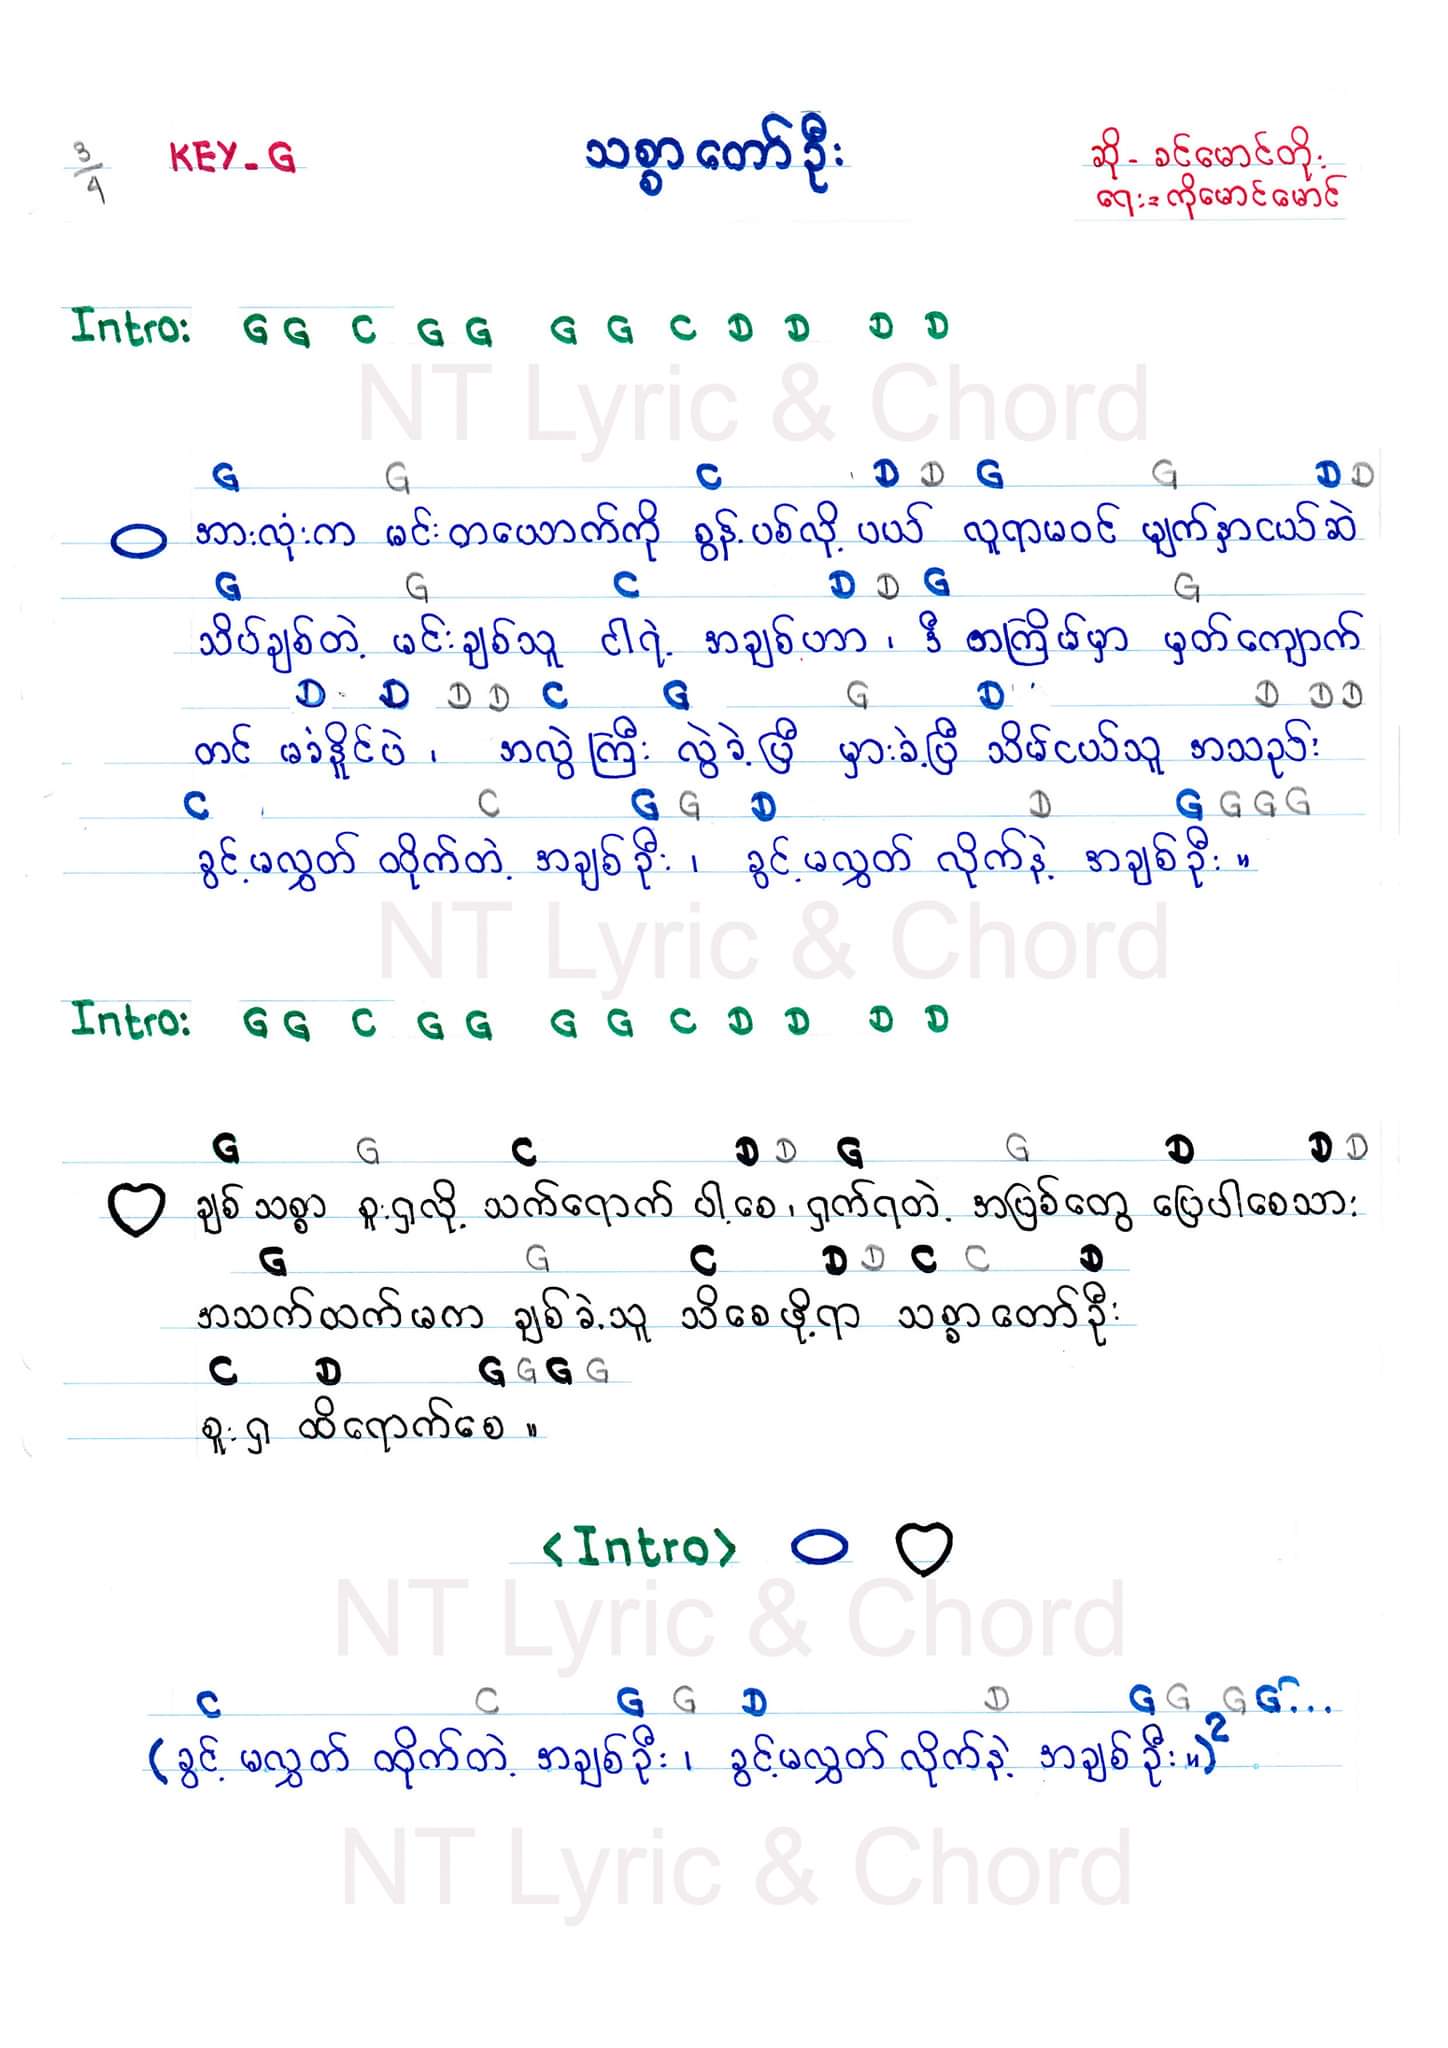 3/4 KEY-G သစ္စာတော်ဦး ဆို - ခင်မောင်တိုး
ရေး = ကိုမောင်မောင်
Intro: G G C G G G G C D D D D
NT Lyric & Chord
G G C D D G G D D
အားလုံးက မင်းတယောက်ကို စွန့်ပစ်လို့ ပယ် လူရာမဝင် မျက်နှာငယ်ဆဲ
G G C D D G G
သိပ်ချစ်တဲ့ မင်းချစ်သူ ငါရဲ့ အချစ်ဟာ ၊ ဒီ တကြိမ်မှာ မှတ်ကျောက်
D D D D C G G D D D D
တင် မခံနိုင်ပဲ ၊ အလွဲကြီး လွဲခဲ့ပြီ မှားခဲ့ပြီ သိမ်ငယ်သူ အသည်း
C C G G D D G G G G
ခွင့်မလွှတ် ထိုက်တဲ့ အချစ်ဦး ၊ ခွင့်မလွှတ် လိုက်နဲ့ အချစ်ဦး ။
NT Lyric & Chord
Intro: G G C G G G G C D D D D
G G C D D G G D D D
ချစ်သစ္စာ စူးရှလို့ သက်ရောက် ပါ့စေ ၊ ရှက်ရတဲ့ အဖြစ်တွေ ပြေပါစေသား
G G C D D C C D
အသက်ထက်မက ချစ်ခဲ့သူ သိစေဖို့ရာ သစ္စာတော်ဦး
C D G G G G
စူးရှ ထိရောက်စေ ။
<Intro>
NT Lyric & Chord
C C G G D D G G G G...
(ခွင့်မလွှတ် ထိုက်တဲ့ အချစ်ဦး ၊ ခွင့်မလွှတ်လိုက်နဲ့ အချစ်ဦး ။)2
NT Lyric & Chord